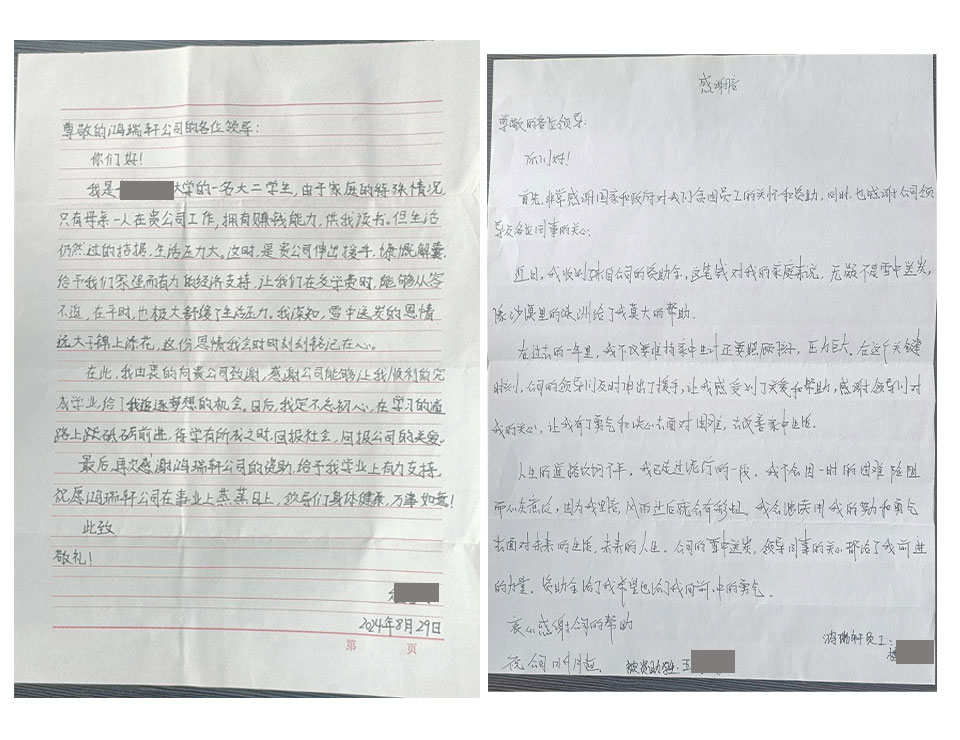 尊敬的鸿瑞轩公司的各位领导:
你们好!
我是 大学的一名大二学生,由于家庭的特殊情况
只有母亲一人在贵公司工作,拥有赚钱能力,供我读书。但生活
仍然过的拮据,生活压力大。这时,是贵公司伸出援手,慷慨解囊
给予我们家强而有力的经济支持,让我们在交学费时,能够从容
不迫,在平时,也极大舒缓了生活压力。我深知,雪中送炭的恩情
远大于锦上添花,这份恩情我会时时刻刻铭记在心。
在此,我由衷的向贵公司致谢,感谢公司能够让我顺利的完
成学业,给了我追逐梦想的机会。日后,我定不忘初心,在学习的道
路上踔砥砺前进,待学有所成之时,回报社会,回报公司的关爱。
最后,再次感谢鸿瑞轩公司的资助,给予我学业上有力支持。
祝愿鸿瑞轩公司在事业上蒸蒸日上,领导们身体健康,万事如意!
此致
敬礼!
2024年8月29日
第 页
感谢信
尊敬的各位领导:
你们好!
首先,非常感谢国家和政府对我们贫困员工的关怀和资助,同时,也感谢公司领
导及各位同事的关心。
近日,我收到来自公司的资助金,这笔钱对我的家庭来说,无疑不是雪中送炭,
像沙漠里的绿洲给了我莫大的帮助.
在过去的一年里,我不仅要维持家中生计还要照顾孩子,压力巨大。在这个关键
时刻,公司的领导们及时伸出了援手,让我感受到了关爱和帮助,感谢领导们对
我的关心,让我有了勇气和决心去面对困难,去改善家中生活。
人生的道路坎坷不平,我已走过泥泞的一段。我不会因一时的困难险阻
而心灰意冷,因为我坚信,风雨过后就会有彩虹。我会继续用我的努力和勇气
去面对未来的生活,未来的人生。公司的雪中送炭,领导同事的关心都给了我前进
的力量。资助金给了我希望也给了我向前冲的勇气。
衷心感谢公司的帮助
祝公司
鸿瑞轩员工:
被资助学生:王